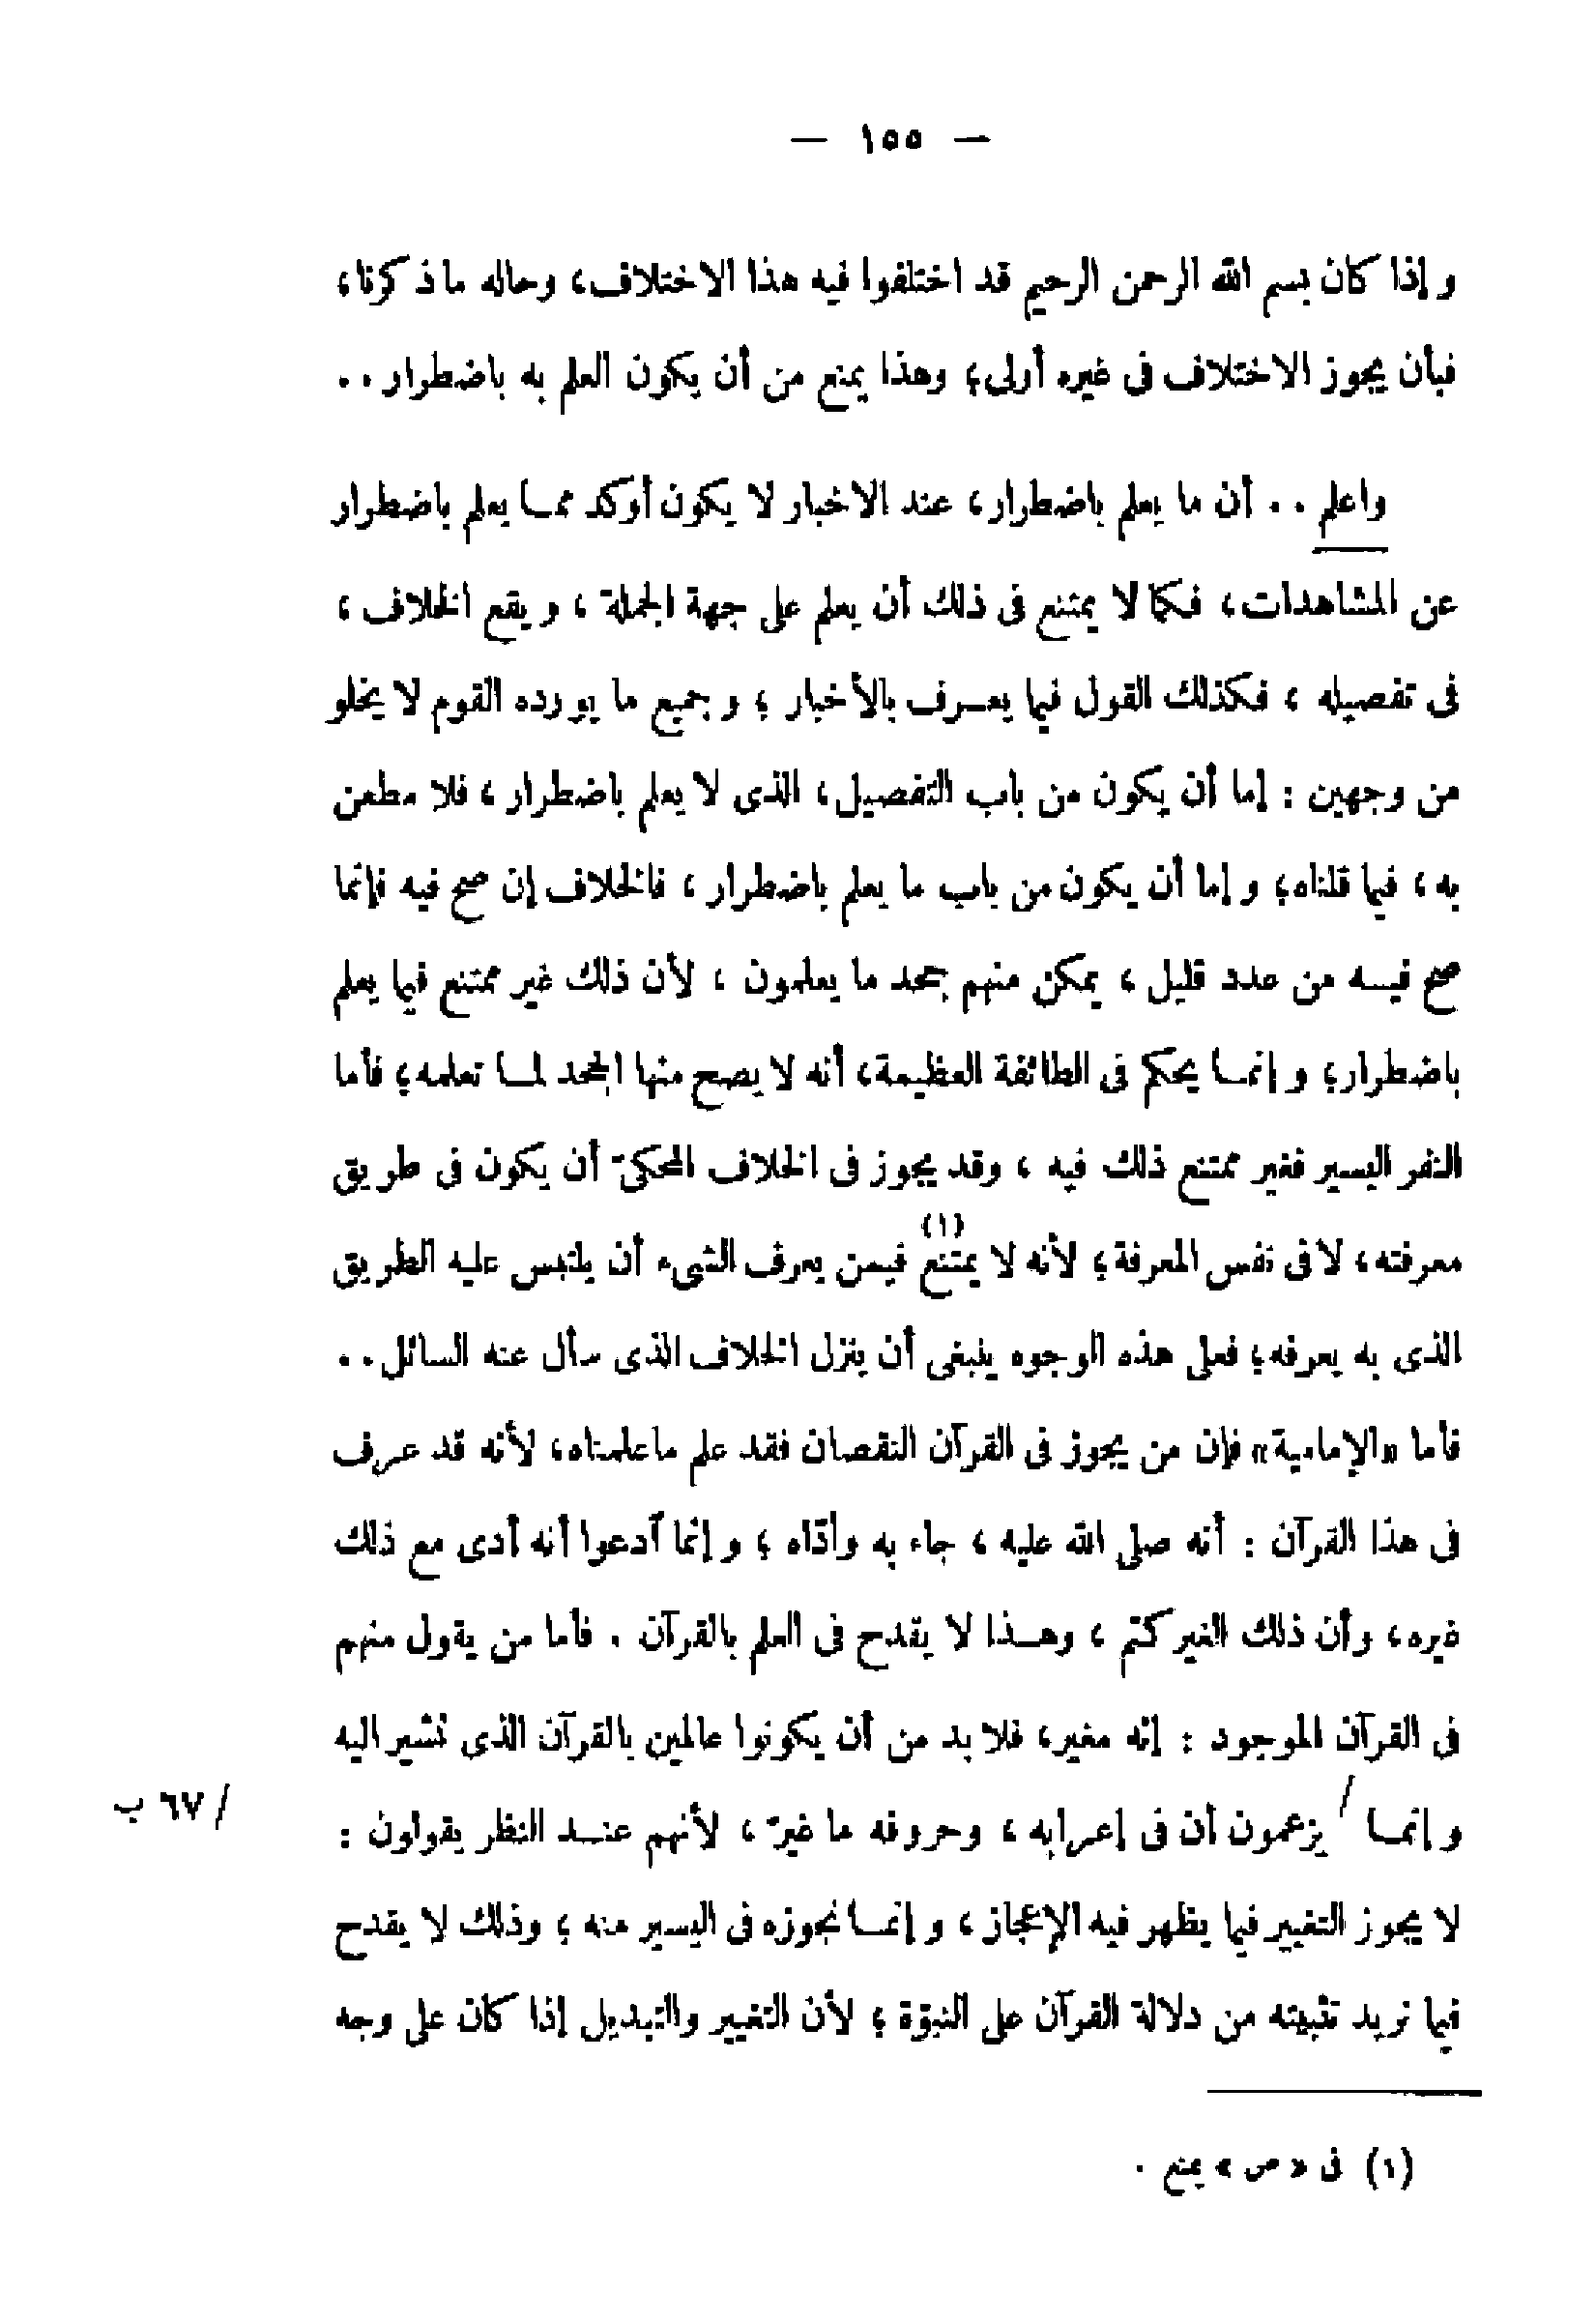 — ١٥٥ —
وإذا كان بسم الله الرحمن الرحيم قد اختلفوا فيه هذا الاختلاف، وحاله ما ذكرنا،
فبأن يجوز الاختلاف فى غيره أولى؛ وهذا يمنع من أن يكون العلم به باضطرار..
واعلم .. أن ما يعلم باضطرار، عند الاخبار لا يكون أوكد ممــا يعلم باضطرار
عن المشاهدات، فكما لا يمتنع فى ذلك أن يعلم على جهة الجملة ، ويقع الخلاف ،
فى تفصيله ، فكذلك القول فيما يعــرف بالأخبار ؛ وجميع ما يورده القوم لا يخلو
من وجهين : إما أن يكون من باب التفصيل، الذى لا يعلم باضطرار ، فلا مطعن
به ، فيما قلناه؛ وإما أن يكون من باب ما يعلم باضطرار ، فالخلاف إن صح فيه فإنما
صح فيــه من عدد قليل ، يمكن منهم جحد ما يعلمون ، لأن ذلك غير ممتنع فيما يعلم
باضطرار؛ وإنمــا يحكم فى الطائفة العظيمة، أنه لا يصح منها الجحد لمــا تعلمه؛ فأما
النفر اليسير فغير ممتنع ذلك فيه ، وقد يجوز فى الخلاف المحكىّ أن يكون فى طريق
معرفته، لا فى نفس المعرفة؛ لأنه لا يمتنع (١) فيمن يعرف الشىء أن يلتبس عليه الطريق
الذى به يعرفه؛ فعلى هذه الوجوه ينبغى أن ينزل الخلاف الذى سأل عنه السائل..
فأما «الإمامية» فإن من يجوز فى القرآن النقصان فقد علم ما علمناه، لأنه قد عرف
فى هذا القرآن : أنه صلى الله عليه ، جاء به وأدّاه ؛ وإنما ادعوا أنه أدى مع ذلك
غيره، وأن ذلك الغير كتم ، وهــذا لا يقدح فى العلم بالقرآن . فأما من يقول منهم
فى القرآن الموجود : إنه مغير، فلا بد من أن يكونوا عالمين بالقرآن الذى نشير اليه
وإنمــا / يزعمون أن فى إعرابه ، وحروفه ما غيرّ ، لأنهم عنــد النظر يقولون :
/ ٦٧ ب
لا يجوز التغيير فيما يظهر فيه الإعجاز ، وإنمــا نجوزه فى اليسير منه ؛ وذلك لا يقدح
فيما نريد تثبيته من دلالة القرآن على النبوّة ؛ لأن التغيير والتبديل إذا كان على وجه
(١) فى «ص» يمنع .